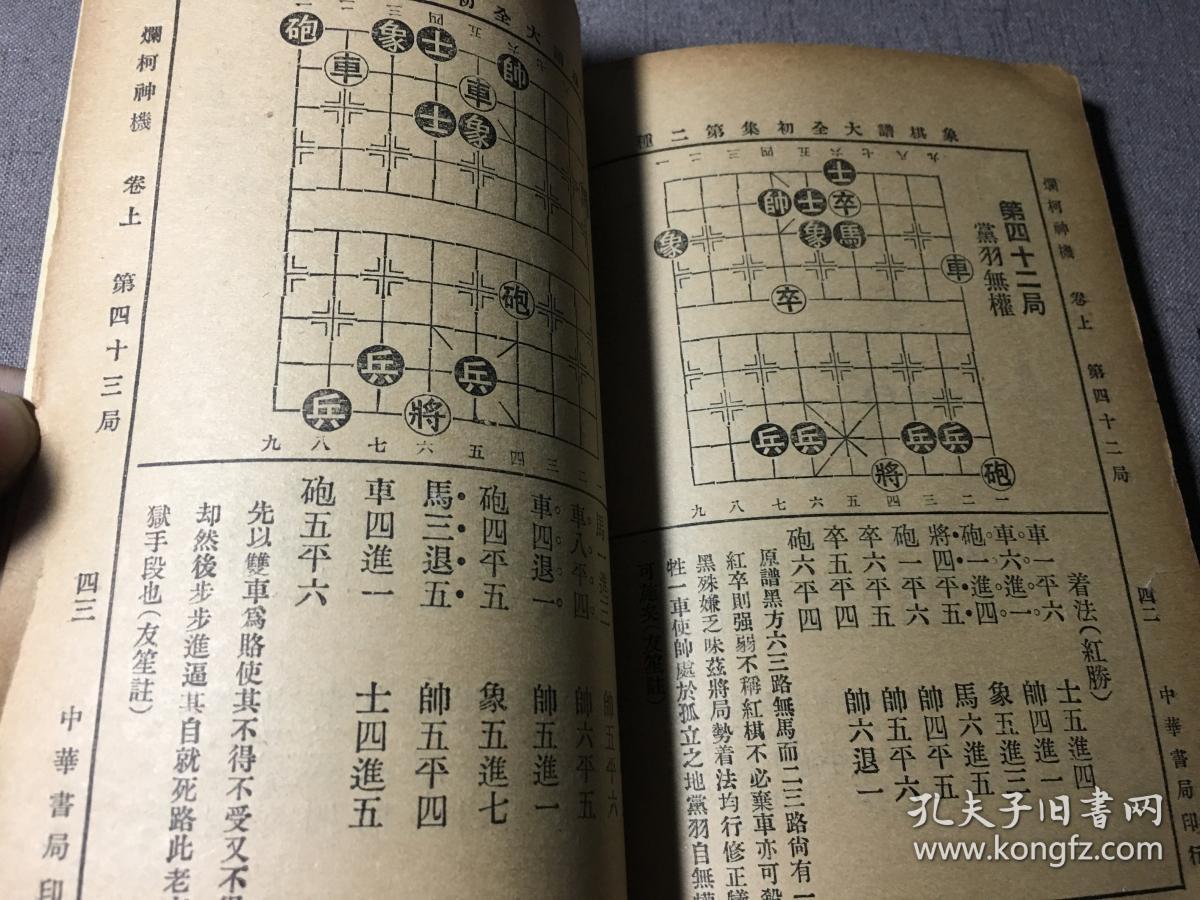 象棋譜大全初集第二種
爛柯神機 卷上 第四十二局
四二
中華書局印行
第四十二局
黨羽無權
一二三四五六七八九
士
帥士卒
象象馬
車
卒
兵兵兵兵
將砲
九八七六五四三二一
着法(紅勝)
車一平六 士五進四
車六進一 帥四進一
砲一進四 象五進三
將四平五 馬六進五
砲一平六 帥四平五
卒六平五 帥五平六
卒五平四 帥六退一
砲六平四
原譜黑方六三路無馬而二三路尙有一
紅卒則强弱不稱紅棋不必棄車亦可殺
黑殊嫌乏味茲將局勢着法均行修正犧
牲一車使帥處於孤立之地黨羽自無權
可施矣(友笙註)
大全初
一二三四五六
砲象士帥
車車
士象
砲
兵兵
兵將
九八七六五四三二
馬一進三 帥五平六
車八平四 帥六平五
車四退一 帥五進一
砲四平五 象五進七
馬三退五 帥五平四
車四進一 士四進五
砲五平六
先以雙車爲賂使其不得不受又不得
却然後步步進逼其自就死路此老
獄手段也(友笙註)
爛柯神機 卷上 第四十三局
四三
中華書局印
孔夫子旧书网
www.kongfz.com